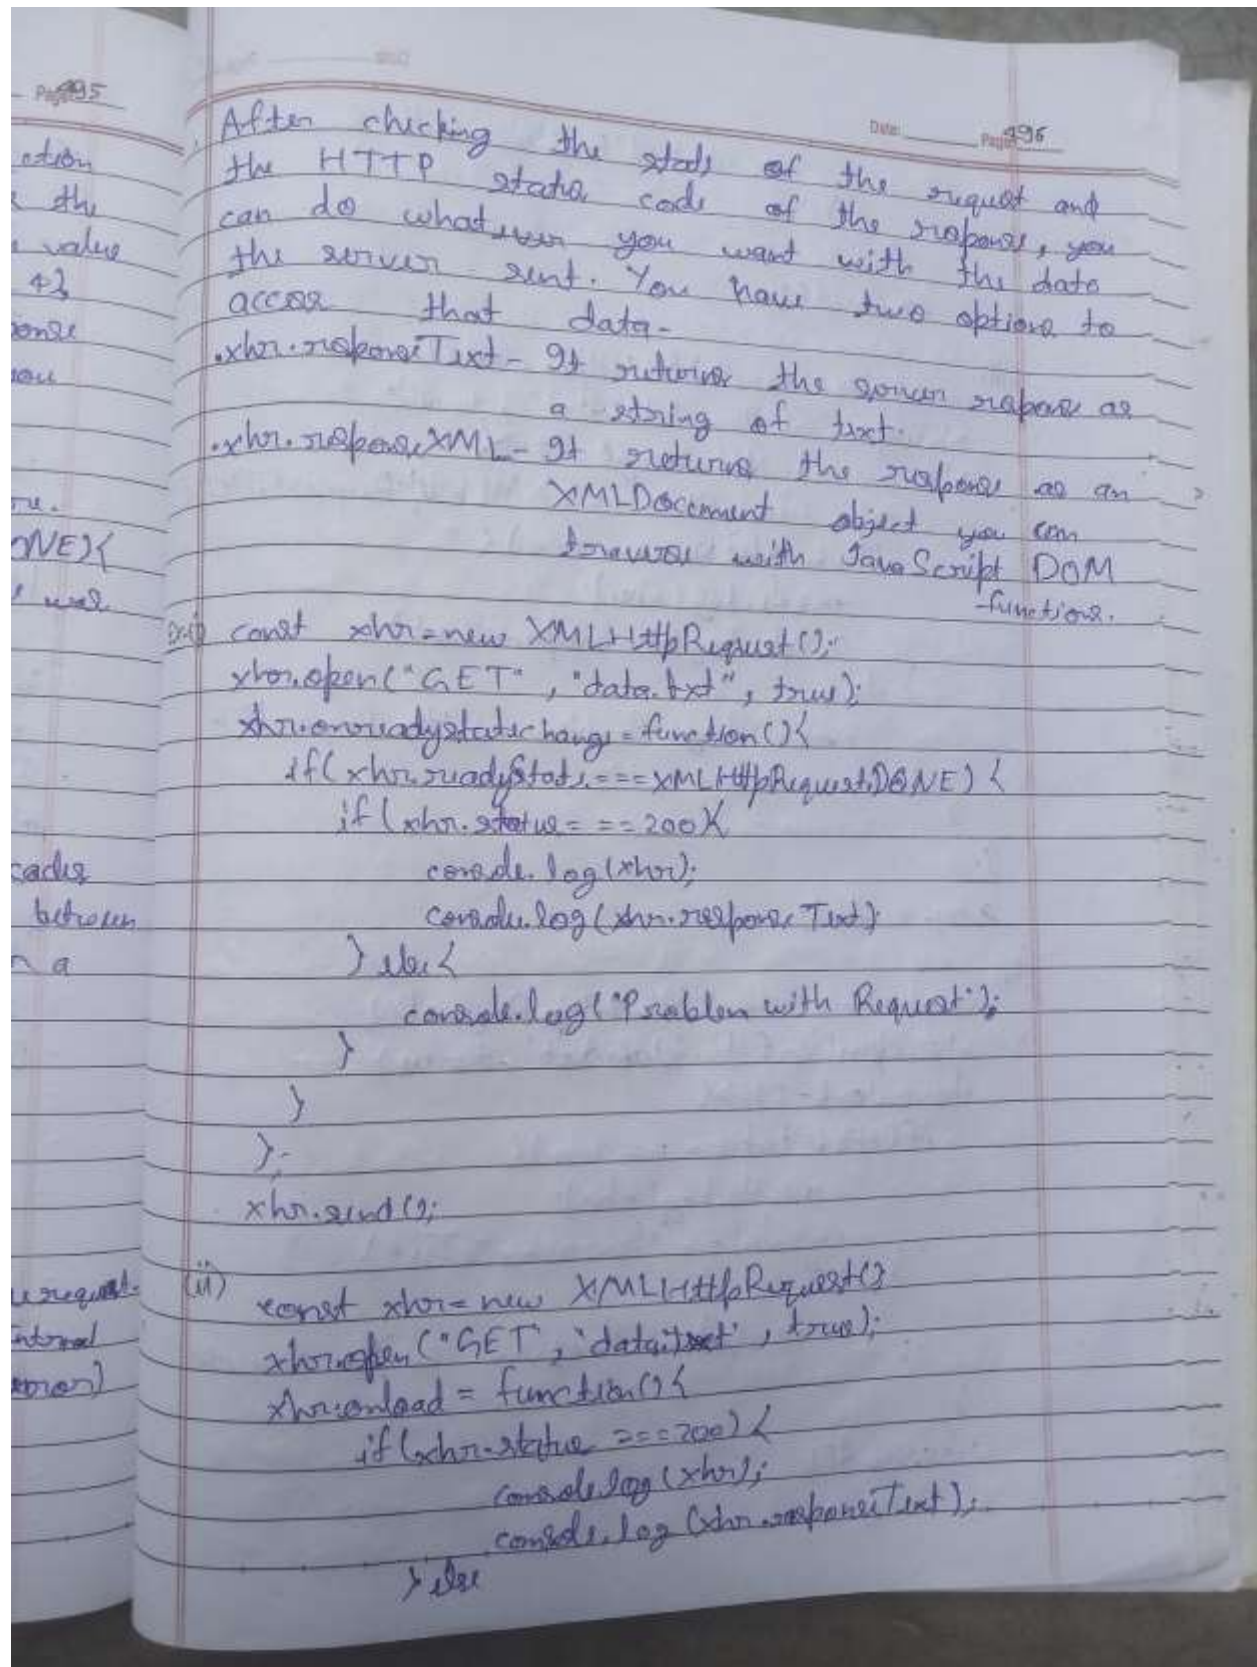 Page 495
ction
the
value
4},
onse
you
re.
ONE){
was
cades
between
n a
request.
Internal
error)
Date: Page 496
After checking the state of the request and
the HTTP status code of the response, you
can do whatever you want with the data
the server sent. You have two options to
access that data-
.xhr.responseText - It returns the server response as
a string of text.
.xhr.responseXML - It returns the response as an
XMLDocument object you can
traverse with JavaScript DOM
functions.
Ex-(i) const xhr = new XMLHttpRequest();
xhr.open("GET", "data.txt", true);
xhr.onreadystatechange = function(){
if(xhr.readyState === XMLHttpRequest.DONE) {
if(xhr.status === 200){
console.log(xhr);
console.log(xhr.responseText);
} else {
console.log("Problem with Request");
}
}
};
xhr.send();
(ii) const xhr = new XMLHttpRequest()
xhr.open("GET", "data.text", true);
xhr.onload = function(){
if(xhr.status === 200) {
console.log(xhr);
console.log(xhr.responseText);
} else